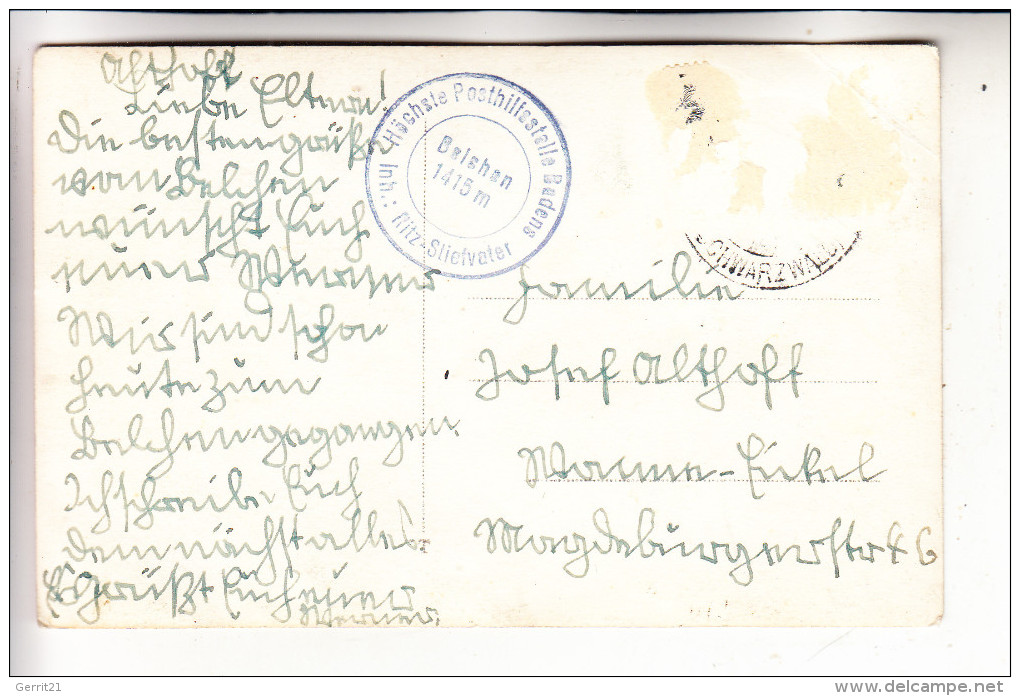 Althoff
Liebe Eltern!
Die besten Grüße
vom Belchen
wünscht Euch
euer Werner
Wir sind schon
heute zum
Belchen gegangen.
Ich schreibe Euch
demnächst alles.
Es Grüßt Euch euer
Werner.
Höchste Posthilfsstelle Badens
Belchen
1415 m
Inh.: Ritz-Stiefvater
SCHWARZWALD
Familie
Josef Althoff
Wanne-Eickel
Magdeburgerstr 6
Gerrit21
www.delcampe.net